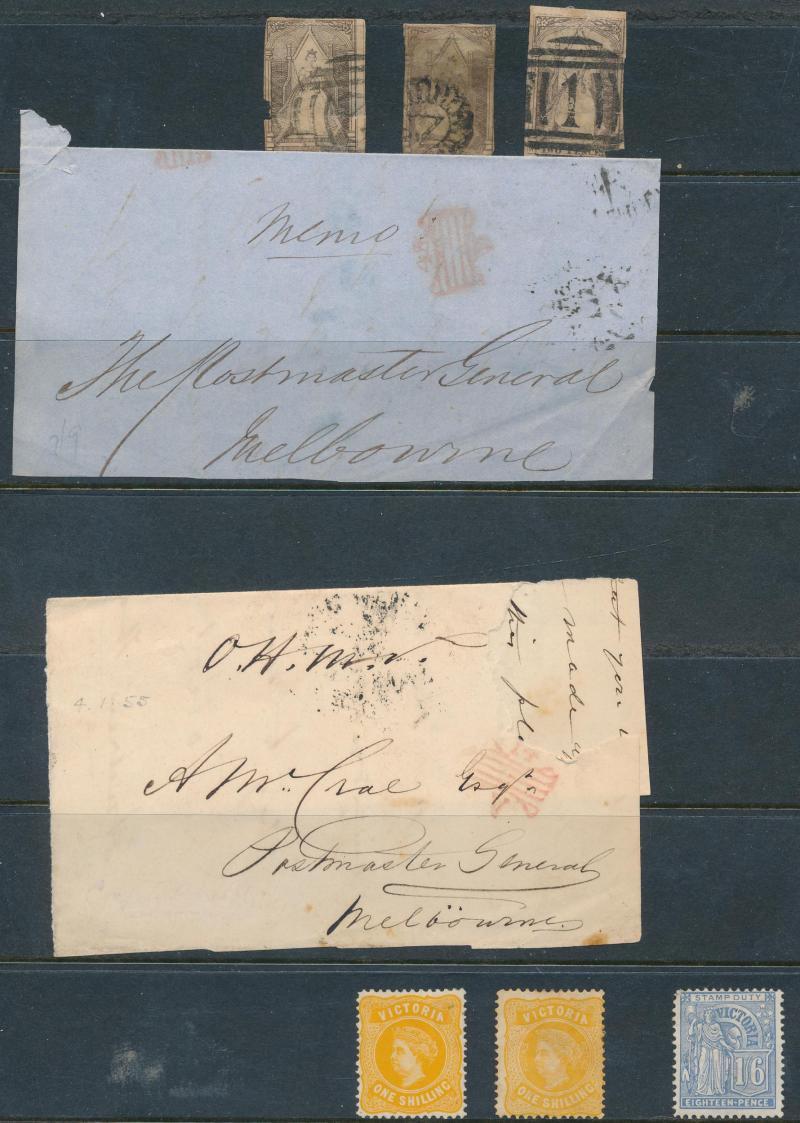 1
Memo
The Postmaster General
Melbourne
2/9
O.H.M.S.
4.1.55
at you
made
this
A McCrae Esqre
Postmaster General
Melbourne
VICTORIA
ONE SHILLING
VICTORIA
ONE SHILLING
STAMP DUTY
VICTORIA
1/6
EIGHTEEN-PENCE